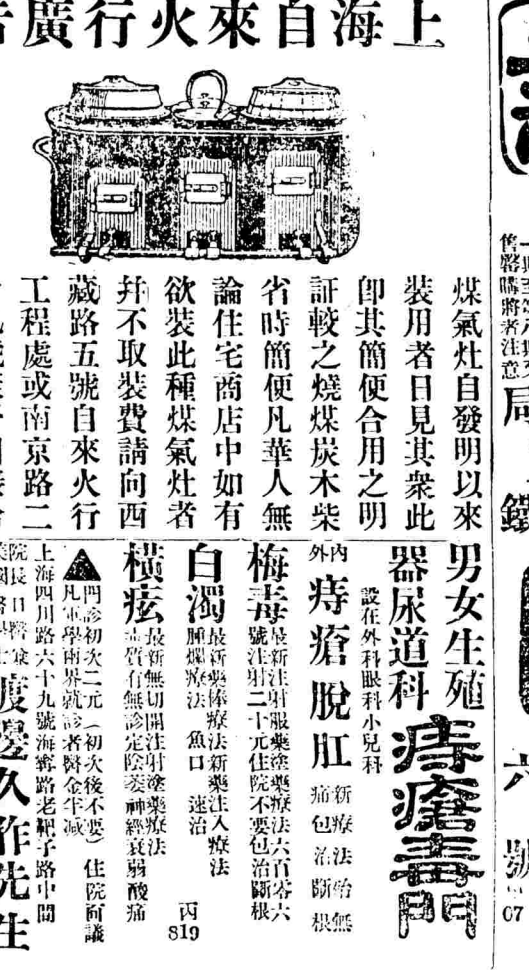 上海自來火行廣告
煤氣灶自發明以來
裝用者日見其衆此
卽其簡便合用之明
証較之燒煤炭木柴
省時簡便凡華人無
論住宅商店中如有
欲裝此種煤氣灶者
幷不取裝費請向西
藏路五號自來火行
工程處或南京路二
男女生殖
器尿道科
設在外科眼科小兒科
痔瘡毒門
內外痔瘡脫肛
新療法絕無
痛包治斷根
梅毒
最新注射服藥塗藥療法六百零六
號注射二十元住院不要包治斷根
白濁
最新藥棒療法新藥注入療法
腫爛療法 魚口 速治
丙
819
橫痃
最新無切開注射塗藥療法
有無診定陰萎神經衰弱酸痛
▲門診初次二元(初次後不要)住院面議
凡軍學兩界就診者醫金半減
上海四川路六十九號海寗路老靶子路中間
院長日醫
渡邊久作先生
售
購將者注意
局
鐵
六
號
07